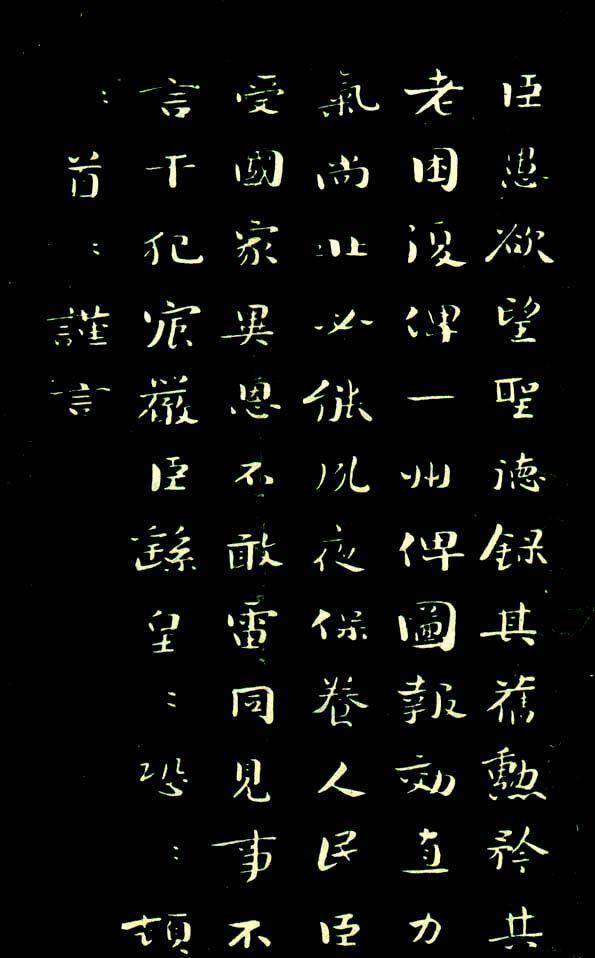 臣愚欲望聖德録其舊勳矜其
老困復俾一州俾圖報効直力
氣尚壯必能夙夜保養人民臣
受國家異恩不敢雷同見事不
言干犯宸嚴臣繇皇〻恐〻頓
〻首〻謹言